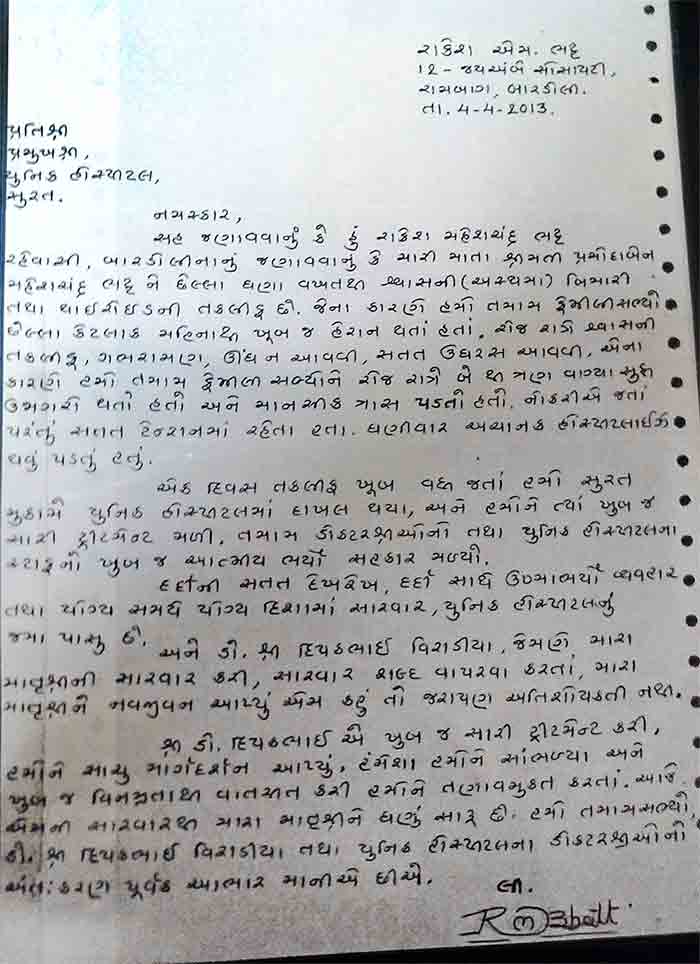 રાકેશ એમ. ભટ્ટ
12 - જયઅંબે સોસાયટી,
રામબાગ, બારડોલી.
તા. 4-4-2013.
પ્રતિશ્રી
પ્રમુખશ્રી,
યુનિક હોસ્પીટલ,
સુરત.
નમસ્કાર,
સહ જણાવવાનું કે હું રાકેશ મહેશચંદ્ર ભટ્ટ
રહેવાસી, બારડોલીનાનું જણાવવાનું કે મારી માતા શ્રીમતી પ્રમોદાબેન
મહેશચંદ્ર ભટ્ટ ને છેલ્લા ઘણા વખતથી શ્વાસની (અસ્થમા) બિમારી
તથા થાઈરોઈડની તકલીફ છે. જેના કારણે હમો તમામ ફેમીલીસભ્યો
છેલ્લા કેટલાક મહિનાથી ખૂબ જ હેરાન થતાં હતાં. રોજ રાત્રે શ્વાસની
તકલીફ, ગભરામણ, ઊંઘ ન આવવી, સતત ઉધરસ આવવી, એના
કારણે હમો તમામ ફેમીલી સભ્યોને રોજ રાત્રે બે થી ત્રણ વાગ્યા સુધી
ઉજાગરો થતો હતો અને માનસીક ત્રાસ પડતો હતો. નોકરીએ જતાં
પરંતું સતત ટેન્શનમાં રહેતા હતા. ઘણીવાર અચાનક હોસ્પીટલાઈઝ
થવું પડતું હતું.
એક દિવસ તકલીફ ખૂબ વધી જતાં હમો સુરત
મુકામે યુનિક હોસ્પીટલમાં દાખલ થયા, અને હમોને ત્યાં ખુબ જ
સારી ટ્રીટમેન્ટ મળી, તમામ ડોકટરશ્રીઓનો તથા યુનિક હોસ્પીટલના
સ્ટાફનો ખુબ જ આત્મીય ભર્યો સહકાર મળ્યો.
દર્દીની સતત દેખરેખ, દર્દી સાથે ઉષ્માભર્યો વ્યવહાર
તથા યોગ્ય સમયે યોગ્ય દિશામાં સારવાર, યુનિક હોસ્પીટલનું
જમા પાસુ છે.
અને ડો. શ્રી દિપકભાઈ વિરાડીયા, જેમણે મારા
માતૃશ્રીની સારવાર કરી, સારવાર શબ્દ વાપરવા કરતાં, મારા
માતૃશ્રીને નવજીવન આપ્યું એમ કહું તો જરાપણ અતિશોયકતી નથી.
શ્રી ડો. દિપકભાઈ એ ખુબ જ સારી ટ્રીટમેન્ટ કરી,
હમોને સાચુ માર્ગદર્શન આપ્યું, હંમેશા હમોને સાંભળ્યા અને
ખુબ જ વિનમ્રતાથી વાતચીત કરી હમોને તણાવમુકત કરતાં. આજે
એમની સારવારથી મારા માતૃશ્રીને ઘણું સારૂ છે. હમો તમામસભ્યો,
ડો. શ્રી દિપકભાઈ વિરાડીયા તથા યુનિક હોસ્પીટલના ડોકટરશ્રીઓનો
અંતઃકરણ પૂર્વક આભાર માનીએ છીએ.
લી.